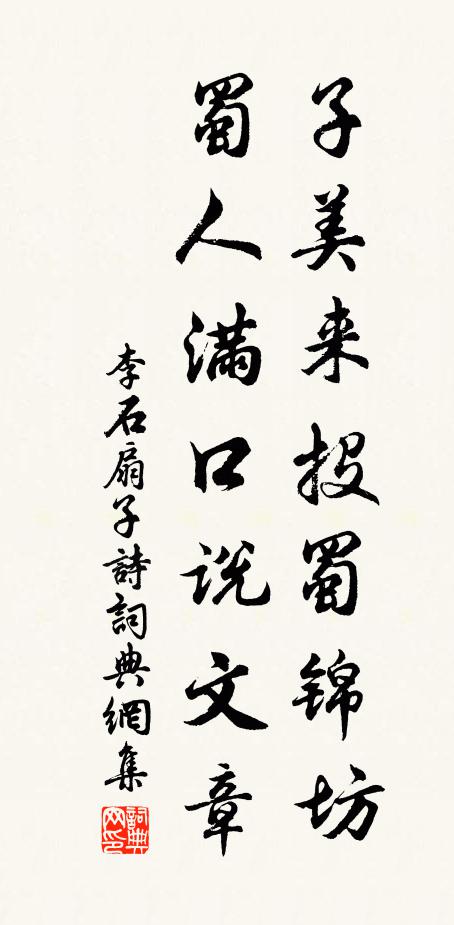 子美来投蜀锦坊
蜀人满口说文章
李石扇子詩詞典網集
詞典网印